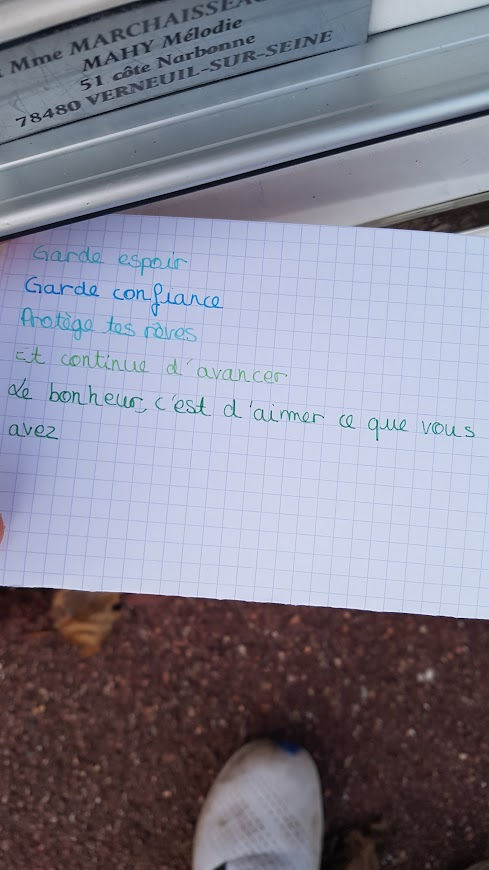 Mme MARCHAISSEA
MAHY Mélodie
51 côte Narbonne
78480 VERNEUIL-SUR-SEINE
Garde espoir
Garde confiance
Protège tes rêves
Et continue d'avancer
Le bonheur, c'est d'aimer ce que vous
avez